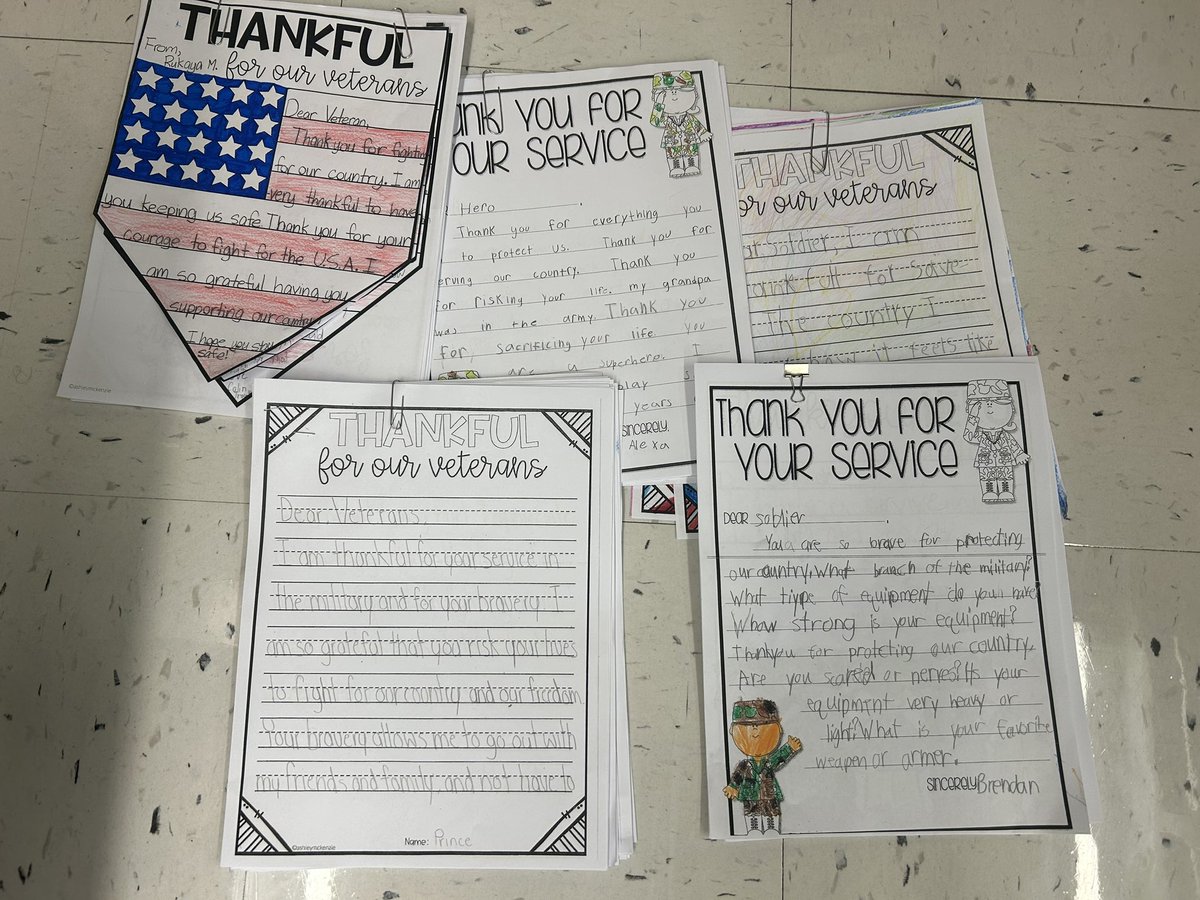 THANKFUL
for our veterans
From,
Rukaya M.
Dear Veteran,
Thank you for fighting
for our country. I am
very thankful to have
you keeping us safe. Thank you for your
courage to fight for the U.S.A. I
am so grateful having you
supporting our country
I hope you stay
safe!
©ashleymckenzie
YOU FOR
OUR SERVICE
Hero
Thank you for everything you
to protect us. Thank you for
erving our country. Thank you
for risking your life. my grandpa
was in the army. Thank you
for, sacrificing your life you
are a superhero. I
play
years
SINCERELY,
Alexa
THANKFUL
for our veterans
soldier, I am
for save
the country I
how it feels like
THANKFUL
for our veterans
Dear Veterans,
I am thankful for your service in
the military and for your bravery. I
am so grateful that you risk your lives
to fight for our country and our freedom.
Your bravery allows me to go out with
my friends and family and not have to
Name: Prince
©ashleymckenzie
THANK YOU FOR
YOUR SERVICE
DEAR soblier.
You are so brave for protecting
our country, What branch of the military?
What tiype of equipment do you have?
Whow strong is your equipment?
Thankyou for proteting our country.
Are you scared or nerves? Its your
equipment very heavy or
light? What is your favorite
weapen or armer.
SINCERELY, Brendan